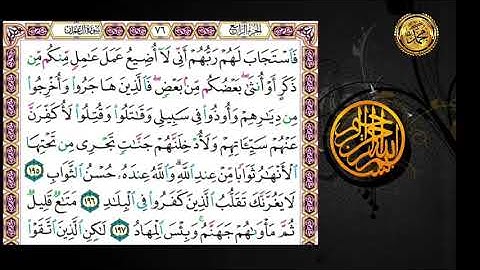 سورة آل عمران ٧٦ الجزء الرابع
فَاسْتَجَابَ لَهُمْ رَبُّهُمْ أَنِّى لَا أُضِيعُ عَمَلَ عَٰمِلٍ مِّنكُم مِّن
ذَكَرٍ أَوْ أُنثَىٰ بَعْضُكُم مِّنۢ بَعْضٍ فَالَّذِينَ هَاجَرُوا وَأُخْرِجُوا
مِن دِيَٰرِهِمْ وَأُوذُوا فِى سَبِيلِى وَقَٰتَلُوا وَقُتِلُوا لَأُكَفِّرَنَّ
عَنْهُمْ سَيِّـَٔاتِهِمْ وَلَأُدْخِلَنَّهُمْ جَنَّٰتٍ تَجْرِى مِن تَحْتِهَا
الْأَنْهَٰرُ ثَوَابًا مِّنْ عِندِ اللَّهِ وَاللَّهُ عِندَهُۥ حُسْنُ الثَّوَابِ ١٩٥
لَا يَغُرَّنَّكَ تَقَلُّبُ الَّذِينَ كَفَرُوا فِى الْبِلَٰدِ ١٩٦ مَتَٰعٌ قَلِيلٌ
ثُمَّ مَأْوَىٰهُمْ جَهَنَّمُ وَبِئْسَ الْمِهَادُ ١٩٧ لَٰكِنِ الَّذِينَ اتَّقَوْا
محمد
بسم الله الرحمن الرحيم